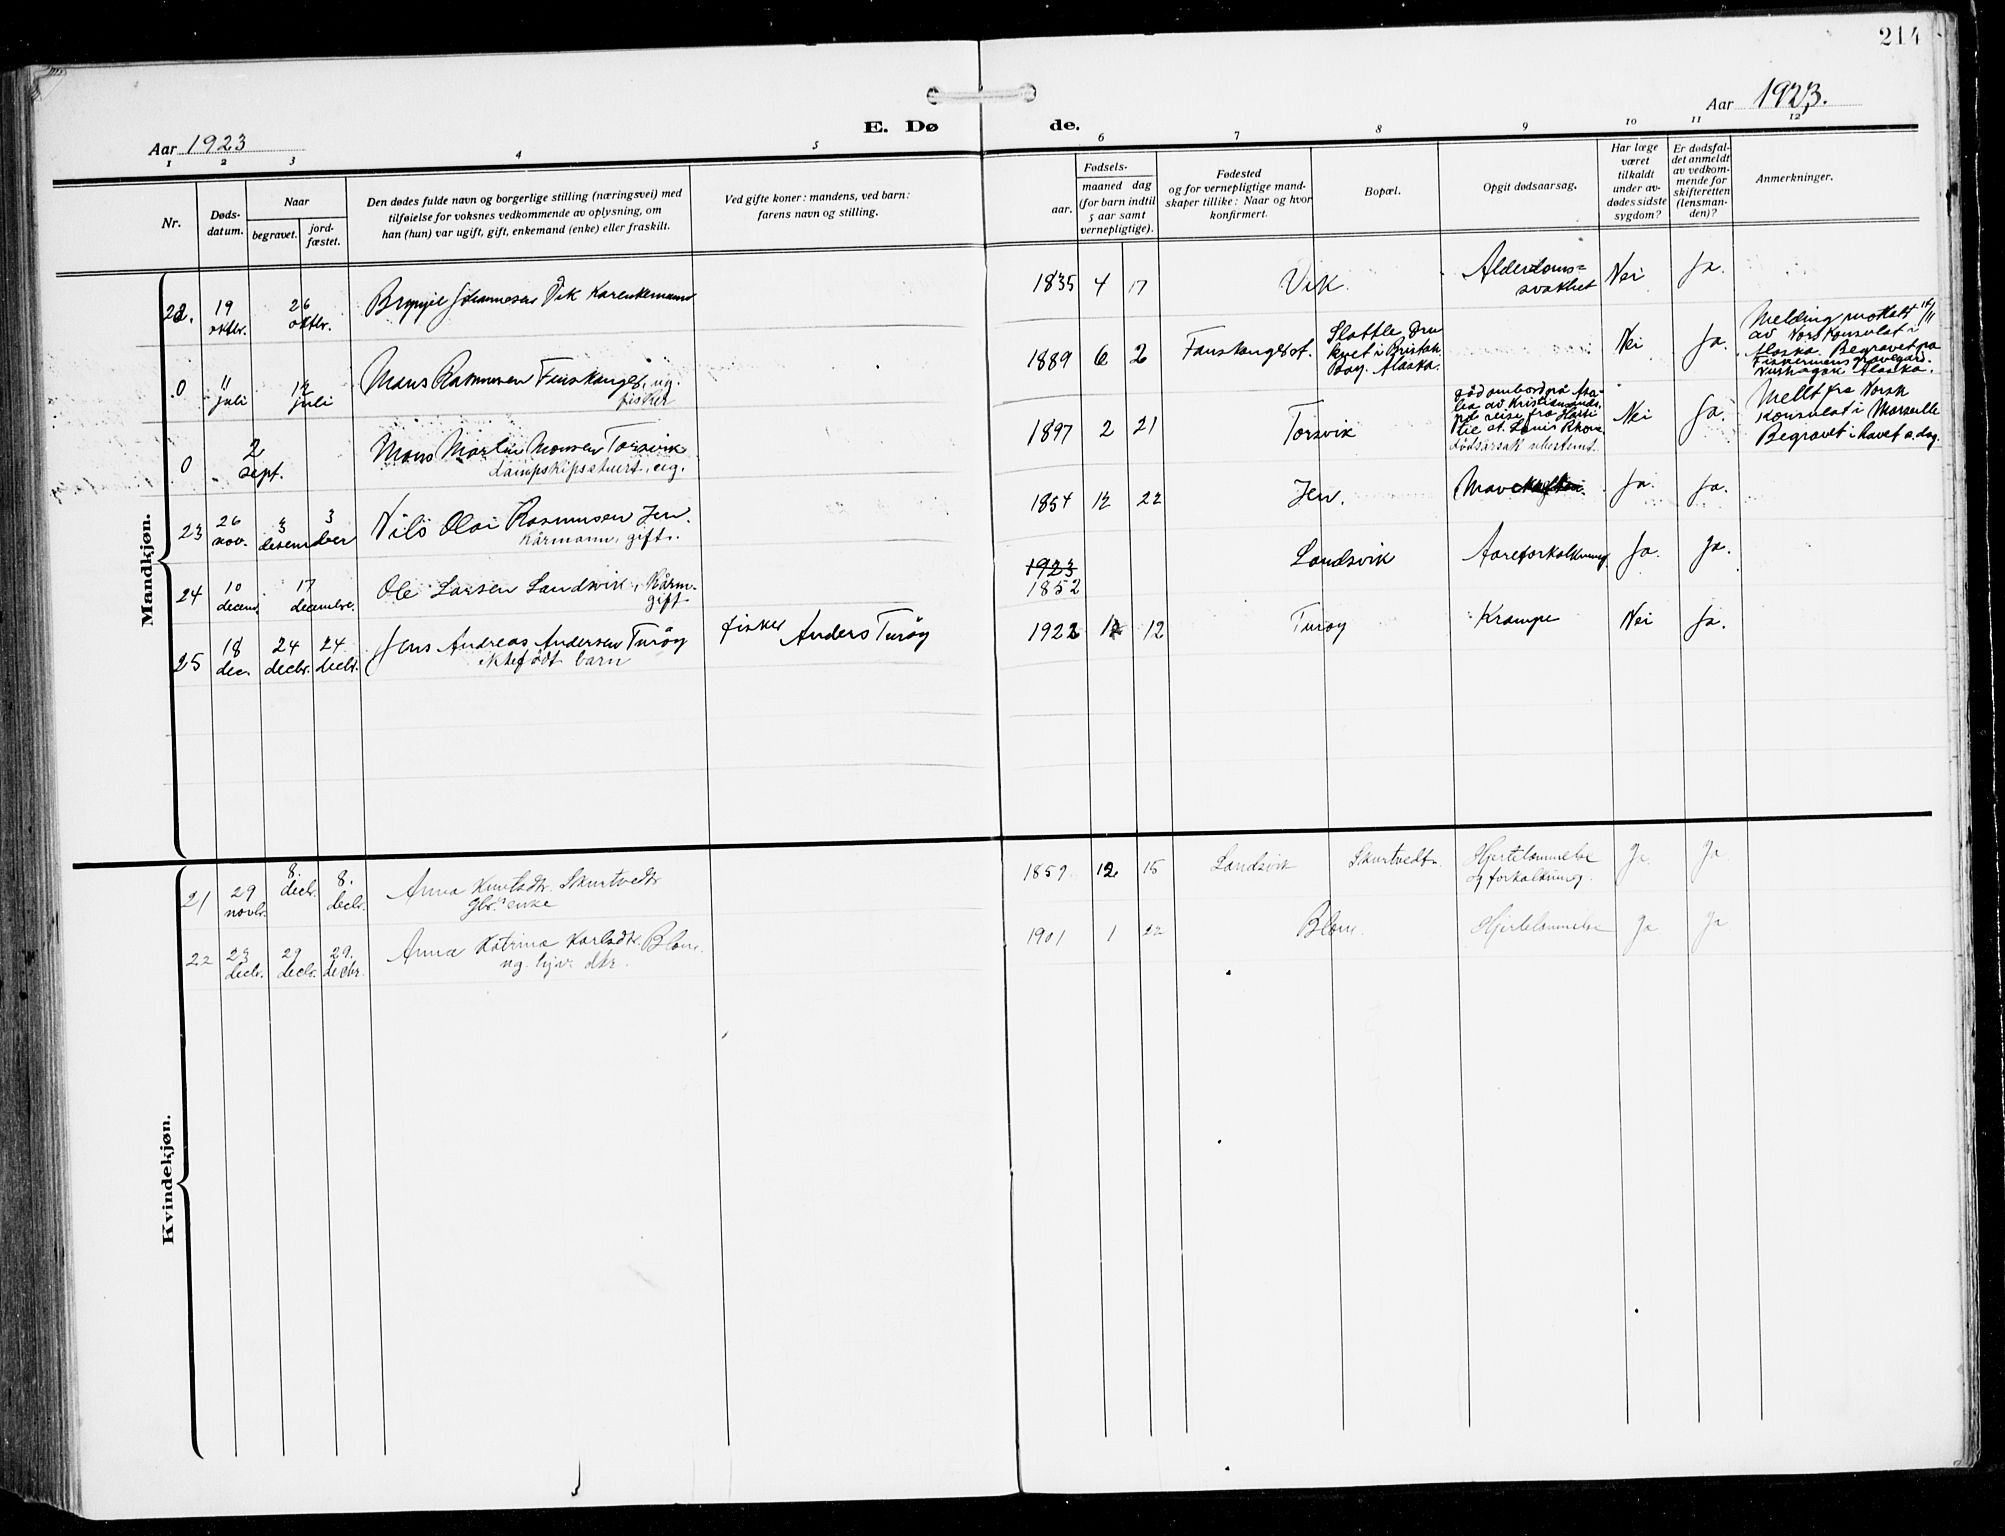 214
Aar 1923
E. Dø
de.
Aar 1923.
1 2 3 4 5 6 7 8 9 10 11 12
Nr.
Døds-
datum.
Naar
begravet.
jord-
fæstet.
Den dødes fulde navn og borgerlige stilling (næringsvei) med
tilføielse for voksnes vedkommende av oplysning, om
han (hun) var ugift, gift, enkemand (enke) eller fraskilt.
Ved gifte koner: mandens, ved barn:
farens navn og stilling.
Fødsels-
aar.
maaned dag
(for barn indtil
5 aar samt
vernepligtige).
Fødested
og for vernepligtige mand-
skaper tillike: Naar og hvor
konfirmert.
Bopæl.
Opgit dødsaarsag.
Har læge
været
tilkaldt
under av-
dødes sidste
sygdom?
Er dødsfal-
det anmeldt
av vedkom-
mende for
skifteretten
(lensman-
den)?
Anmerkninger.
Mandkjøn.
22. 19 oktbr. 26 oktbr.
Johannesen Vik
1835 4 17 Vik. Alderdoms=
svakhet Nei Ja.
0 11 juli juli
Mons Rasmussen ug.
fisker
1889 6 2
Bay. Alaska.
Nei Ja.
Melding
av Norsk Konsulat i
Alaska. Begravet på
Alaska.
0 2 sept.
Mons Martin Monsen Torsvik
dampskipsstuert, ug.
1897 2 21 Torsvik
død ombord på
av Kristiansand
reise fra Haiti
til St. Louis Rhone
dødsårsak ubestemt.
Nei Ja.
Meldt fra Norsk
Konsulat i Marseille
Begravet i havet s. dag.
23 26 nov. 3 3 desember
Nils Olai Rasmussen Jen.
kårmann, gift.
1854 12 22 Jen. Ja. Ja.
24 10 decem. 17 decembr.
Ole Larsen Landsvik, kårm.
gift
1923
1852 Landsvik Aareforkalkning Ja. Ja.
25 18 dec. 24 decbr. 24 decbr.
Jens Andreas Andersen Turøy
ektefødt barn
fisker Anders Turøy
1922 12 12 Turøy Krampe Nei Ja.
Kvindekjøn.
21 29 novbr. 8. decbr. 8. decbr.
Anna Knutsdtr. Skurtvedt
gbr. enke
1859 12 15 Landsvik Skurtvedt. Hjertelammelse
og forkalkning. Ja Ja
22 23 decbr. 29 decbr. 29. decbr.
Anna Katrina Karlsdtr. Blom.
ug. hjv. dtr.
1901 1 22 Blom. Hjertelammelse Ja Ja